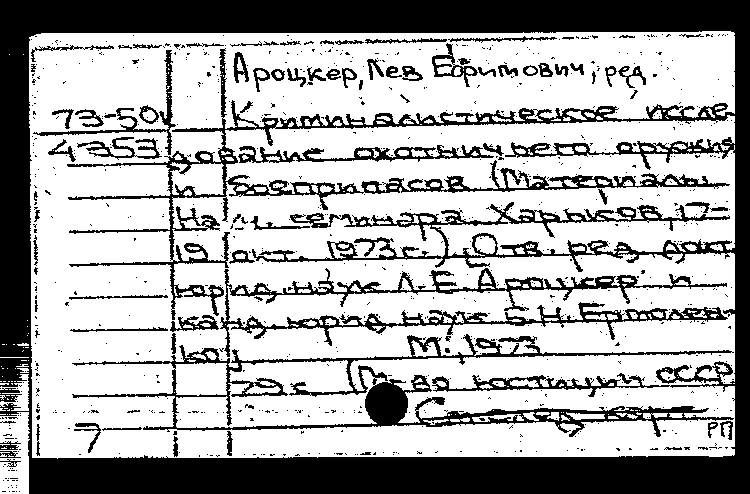 Ароцкер, Лев Ефимович, ред.
73-50
4353
Криминалистическое иссле-
дование охотничьего оружия
и боеприпасов (Материалы
Науч. семинара. Харьков, 17-
19 окт. 1973 г.). Отв. ред. докт.
юрид. наук Л.Е. Ароцкер и
канд. юрид. наук Б.Н. Ермолен-
ко]. М., 1973
79 с (М-во юстиции СССР
См. след. карт.
7
РП